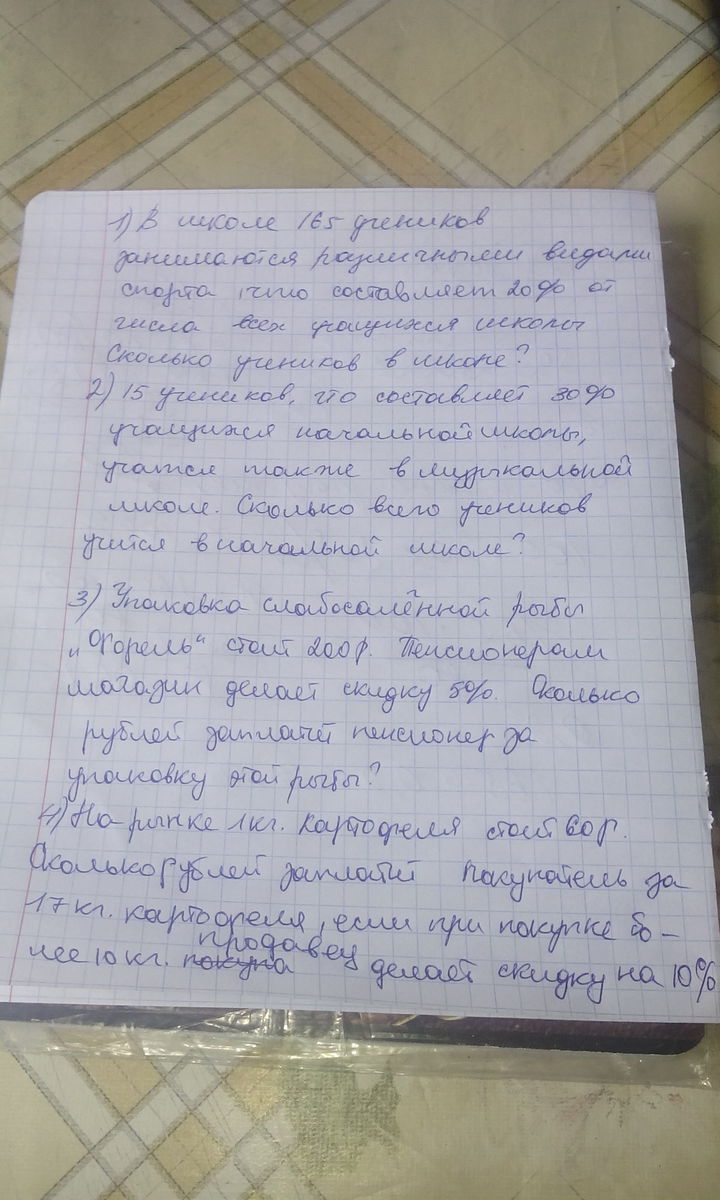 1) В школе 165 учеников
занимаются различными видами
спорта, что составляет 20% от
числа всех учащихся школы
Сколько учеников в школе?
2) 15 учеников, что составляет 30%
учащихся начальной школы,
учатся также в музыкальной
школе. Сколько всего учеников
учится в начальной школе?
3) Упаковка слабосалённой рыбы
„Форель“ стоит 200р. Пенсионерам
магазин делает скидку 5%. Сколько
рублей заплатит пенсионер за
упаковку этой рыбы?
4) На рынке 1кг. картофеля стоит 60р.
Сколько рублей заплатит покупатель за
17 кг. картофеля, если при покупке бо-
лее 10 кг. продавец делает скидку на 10%